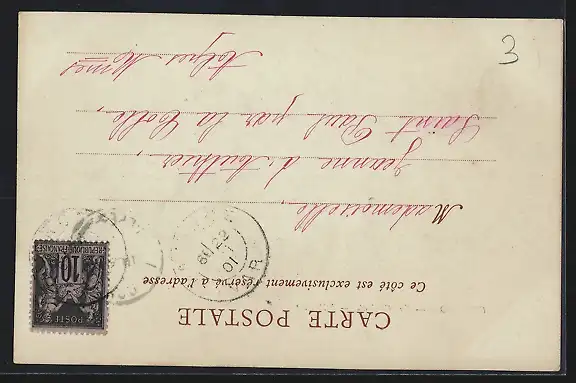 CARTE POSTALE
Ce côté est exclusivement réservé à l'adresse
Mademoiselle,
Jeanne d'
Saint Paul par la Colle,
Alpes Mmes
3
22
01
POSTE
10
REPUBLIQUE FRANÇAISE